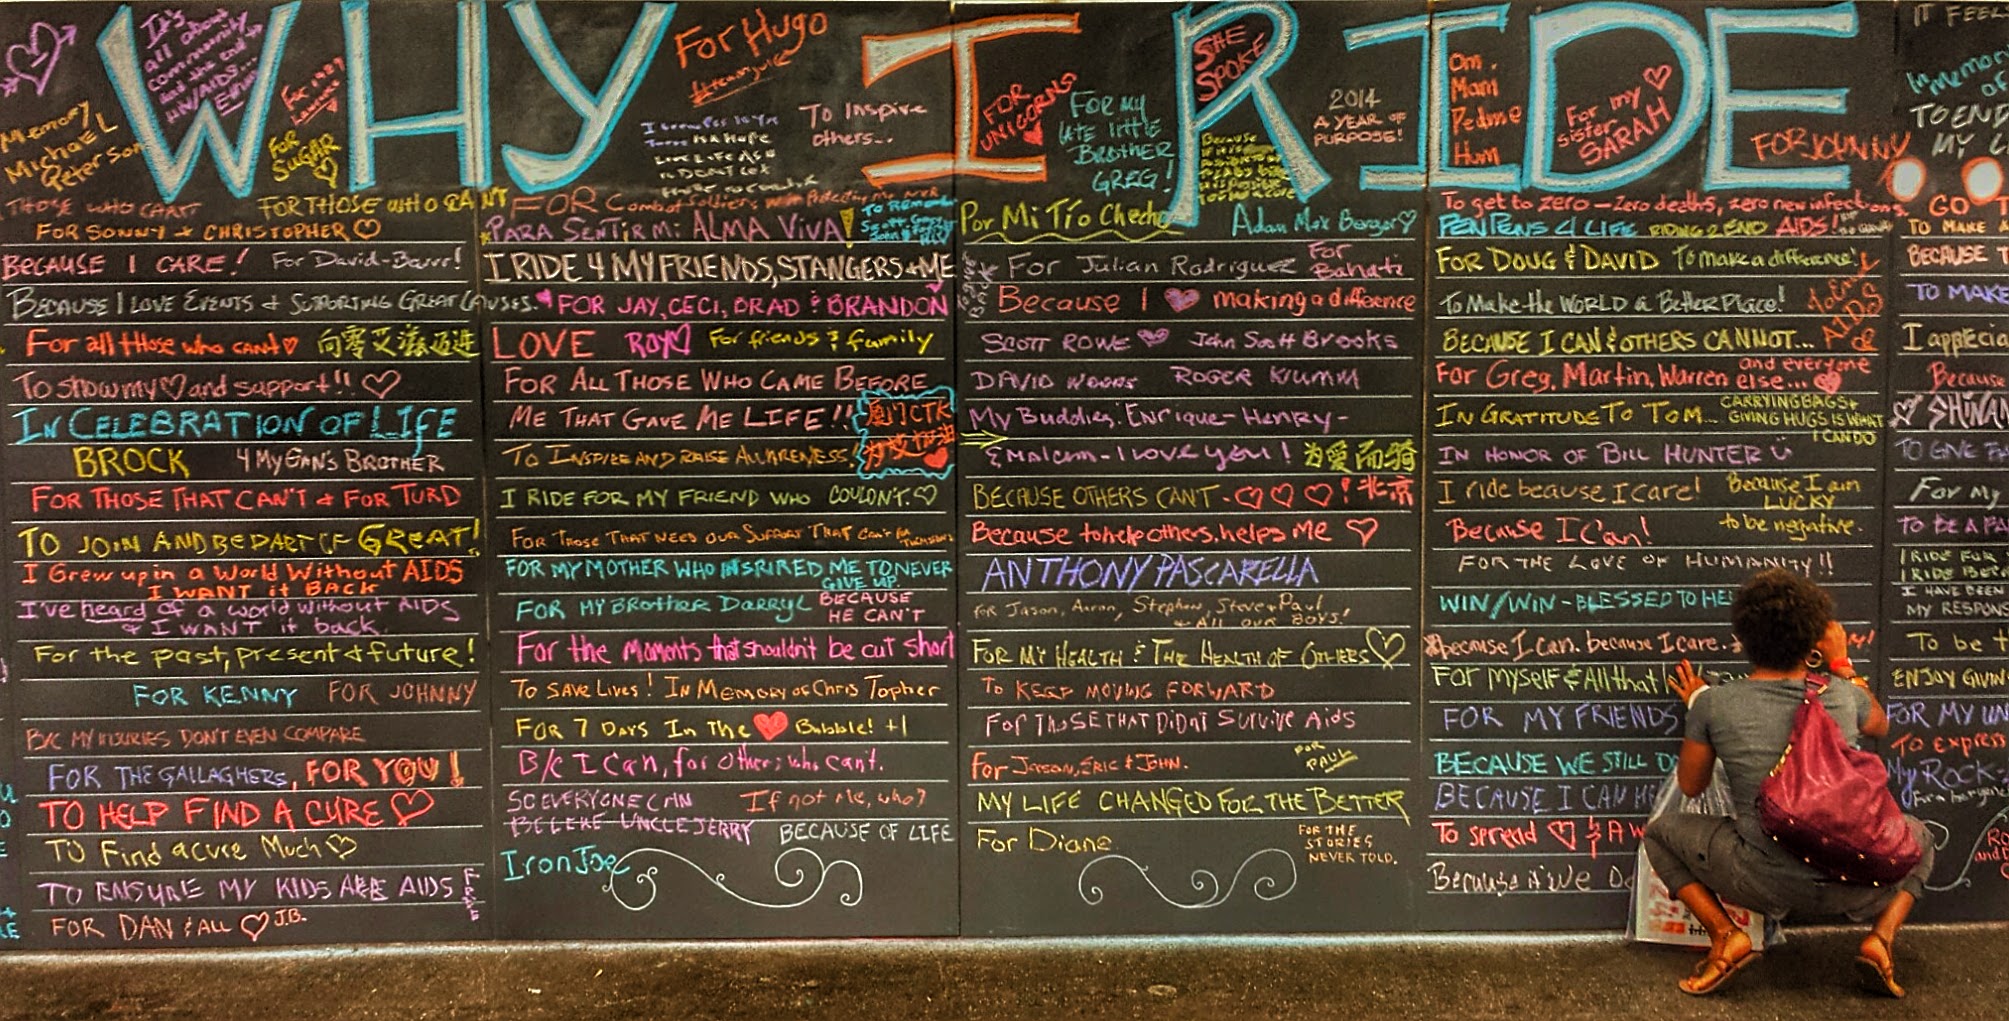 WHY I RIDE
It's
all about
community
and the end
HIV/AIDS...
Memory
Michael
Peterson
FOR
SUGAR
For Hugo
To Inspire
others...
FOR
UNICORNS
FOR MY
late little
BROTHER
GREG!
SHE
SPOKE
2014
A YEAR OF
PURPOSE!
Om.
Mani
Pedme
Hum
For my
sister
SARAH
FOR JOHNNY
In memory
of
TO END
MY
THOSE WHO CAN'T
FOR THOSE WHO CAN'T
FOR SONNY + CHRISTOPHER
BECAUSE I CARE!
For David-Baur!
BECAUSE I LOVE EVENTS & SUPPORTING GREAT CAUSES.
For all those who can't
向零艾滋迈进
To show my and support!!
IN CELEBRATION OF LIFE
BROCK
4 MY GAN'S BROTHER
FOR THOSE THAT CAN'T & FOR TURD
TO JOIN AND BE PART OF GREAT!
I Grew up in a World Without AIDS
I WANT it BACK
I've heard of a world without AIDS
& I WANT it back.
For the past, present & future!
FOR KENNY
FOR JOHNNY
B/C MY INJURIES DON'T EVEN COMPARE
FOR THE GALLAGHERS, FOR YOU!
TO HELP FIND A CURE
TO Find a cure Much
TO ENSURE MY KIDS ARE AIDS FREE
FOR DAN & ALL J.B.
FOR Combat Soldiers,
PARA SENTIR MI ALMA VIVA!
To Remember
I RIDE 4 MY FRIENDS, STANGERS & ME
FOR JAY, CECI, BRAD & BRANDON
LOVE
ROY
For friends & family
FOR ALL THOSE WHO CAME BEFORE
ME THAT GAVE ME LIFE!!
厦门CTK
为爱加油
TO INSPIRE AND RAISE AWARENESS!
I RIDE FOR MY FRIEND WHO COULDN'T.
FOR THOSE THAT NEED OUR SUPPORT THAT Can't
FOR MY MOTHER WHO INSPIRED ME TO NEVER
GIVE UP.
FOR MY BROTHER DARRYL
BECAUSE
HE CAN'T
For the moments that shouldn't be cut short
TO SAVE LIVES! IN MEMORY OF Chris Topher
FOR 7 DAYS IN THE Bubble! +1
B/C I Can, for others who can't.
SO EVERYONE CAN
If not Me, who?
UNCLE JERRY
BECAUSE OF LIFE
Iron Joe
Por Mi Tío Checho
Adan Max Berger
For Julian Rodriguez
For
Because I making a difference
SCOTT ROWE
John Scott Brooks
DAVID
ROGER KLUMM
My Buddies: Enrique - Henry -
& Malcom - I love you!
为爱而骑
BECAUSE OTHERS CAN'T - ! 北京
Because to help others, helps Me
ANTHONY PASCARELLA
FOR Jason, Aaron, Stephen, Steve + Paul
+ ALL OUR BOYS!
FOR MY HEALTH & THE HEALTH OF OTHERS
TO KEEP MOVING FORWARD
FOR THOSE THAT DIDN'T SURVIVE AIDS
For Jason, ERIC & JOHN.
FOR
PAUL
MY LIFE CHANGED FOR THE BETTER
For Diane
FOR THE
STORIES
NEVER TOLD.
To get to zero - zero deaths, zero new infections
PEN PENS 4 LIFE RIDING 2 END AIDS!
FOR DOUG & DAVID To make a difference!
To Make the WORLD a Better Place!
to End
AIDS
BECAUSE I CAN & OTHERS CANNOT...
For Greg, Martin, Warren and everyone
else...
IN GRATITUDE TO TOM...
CARRYING BAGS +
GIVING HUGS IS WHAT
I CAN DO
IN HONOR OF BILL HUNTER
I ride because I care!
Because I am
LUCKY
to be negative.
Because I Can!
FOR THE LOVE OF HUMANITY!!
WIN/WIN - BLESSED TO
Because I Can. because I care.
FOR myself & All that
FOR MY FRIENDS
BECAUSE WE STILL
BECAUSE I CAN
To spread
Because
IT FEELS
GO
TO MAKE
BECAUSE
TO MAKE
I apprecia
Because
TO GIVE
For my
TO BE A
I RIDE FOR
I RIDE
I HAVE BEEN
MY RESPONS
To be
ENJOY GIVIN
FOR MY
To express
My ROCK